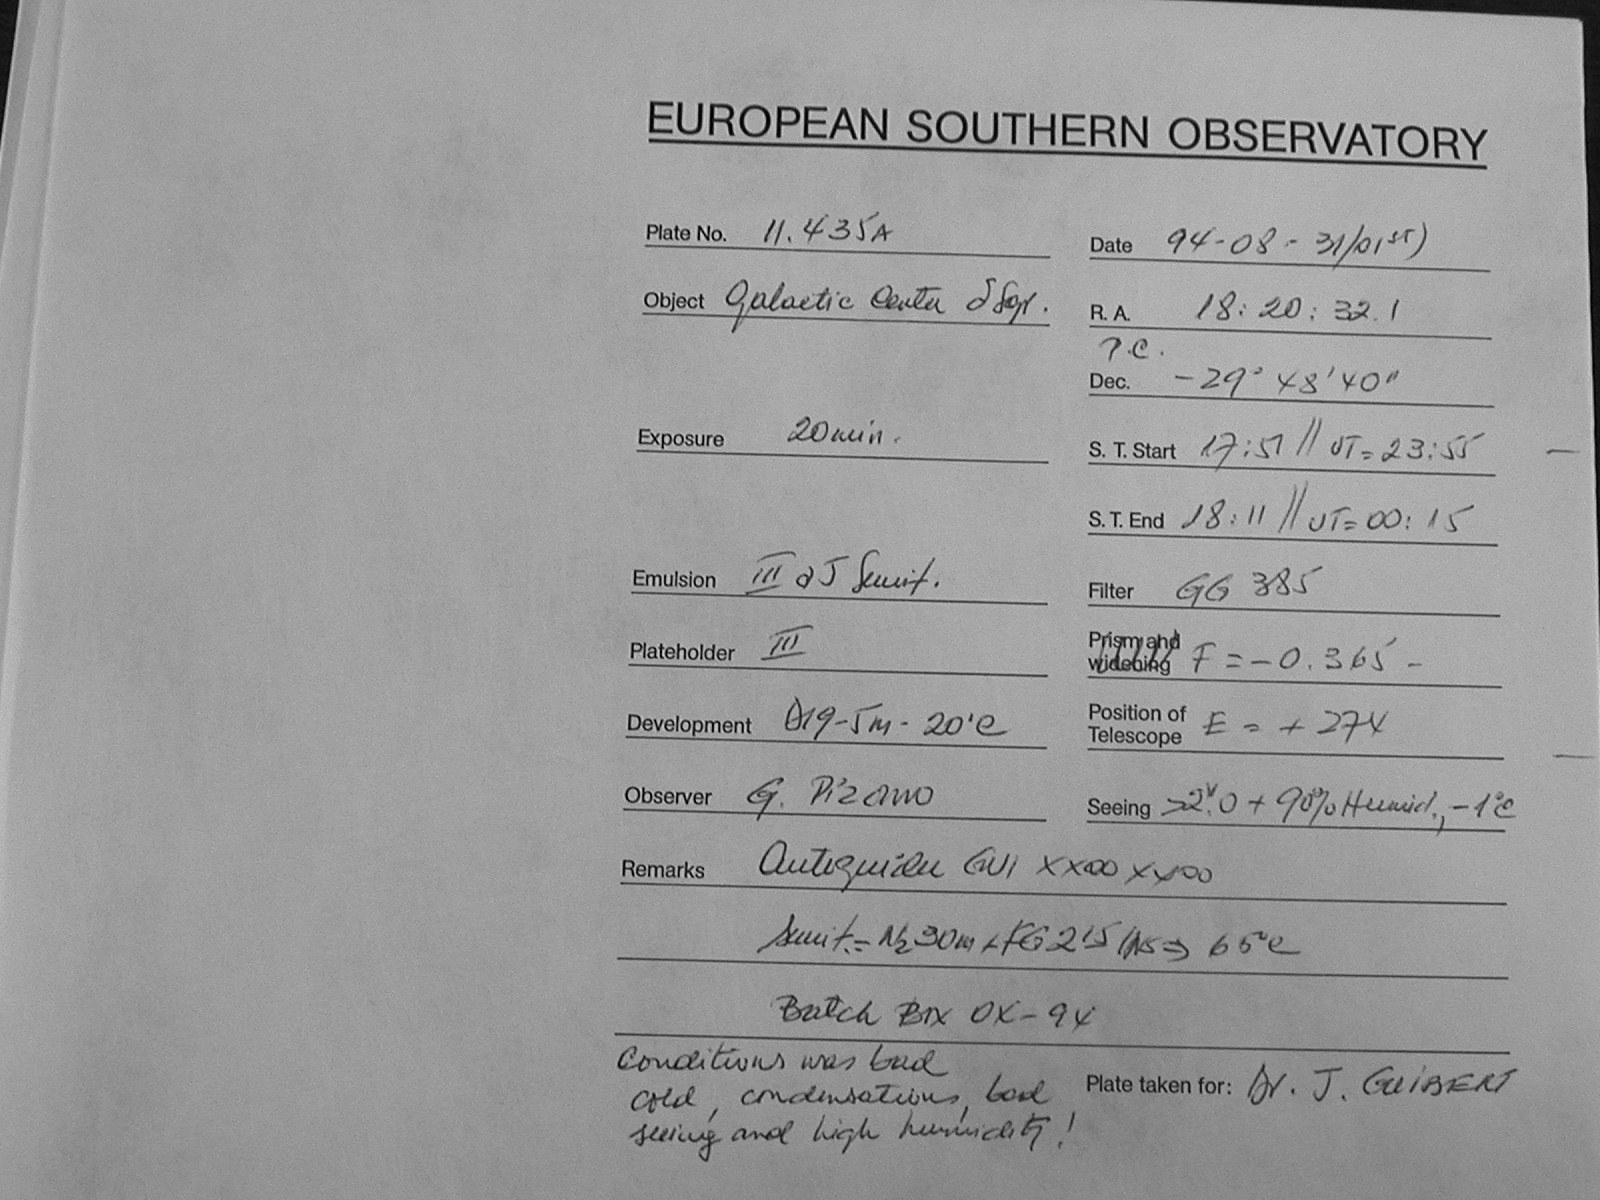 EUROPEAN SOUTHERN OBSERVATORY
Plate No. 11.435A
Date 94-08-31/01st)
Object Galactic Center δ Sgr.
R. A. 18:20:32.1
T.C.
Dec. -29° 48' 40"
Exposure 20min.
S. T. Start 17:51 // UT=23:55
S. T. End 18:11 // UT=00:15
Emulsion III aJ Sensit.
Filter GG 385
Plateholder III
Prism and widening F = -0.365 -
Development D19-5m-20°C
Position of Telescope E = + 274
Observer G. Pizarro
Seeing >2".0 + 90% Humid., -1°C
Remarks Autoguider GUI XX00XX00
Sensit.= N2 30m + FG 215 65°C
Batch Box 0X-94
Conditions was bad
cold, condensations, bad
seeing and high humidity!
Plate taken for: Dr. J. GUIBERT